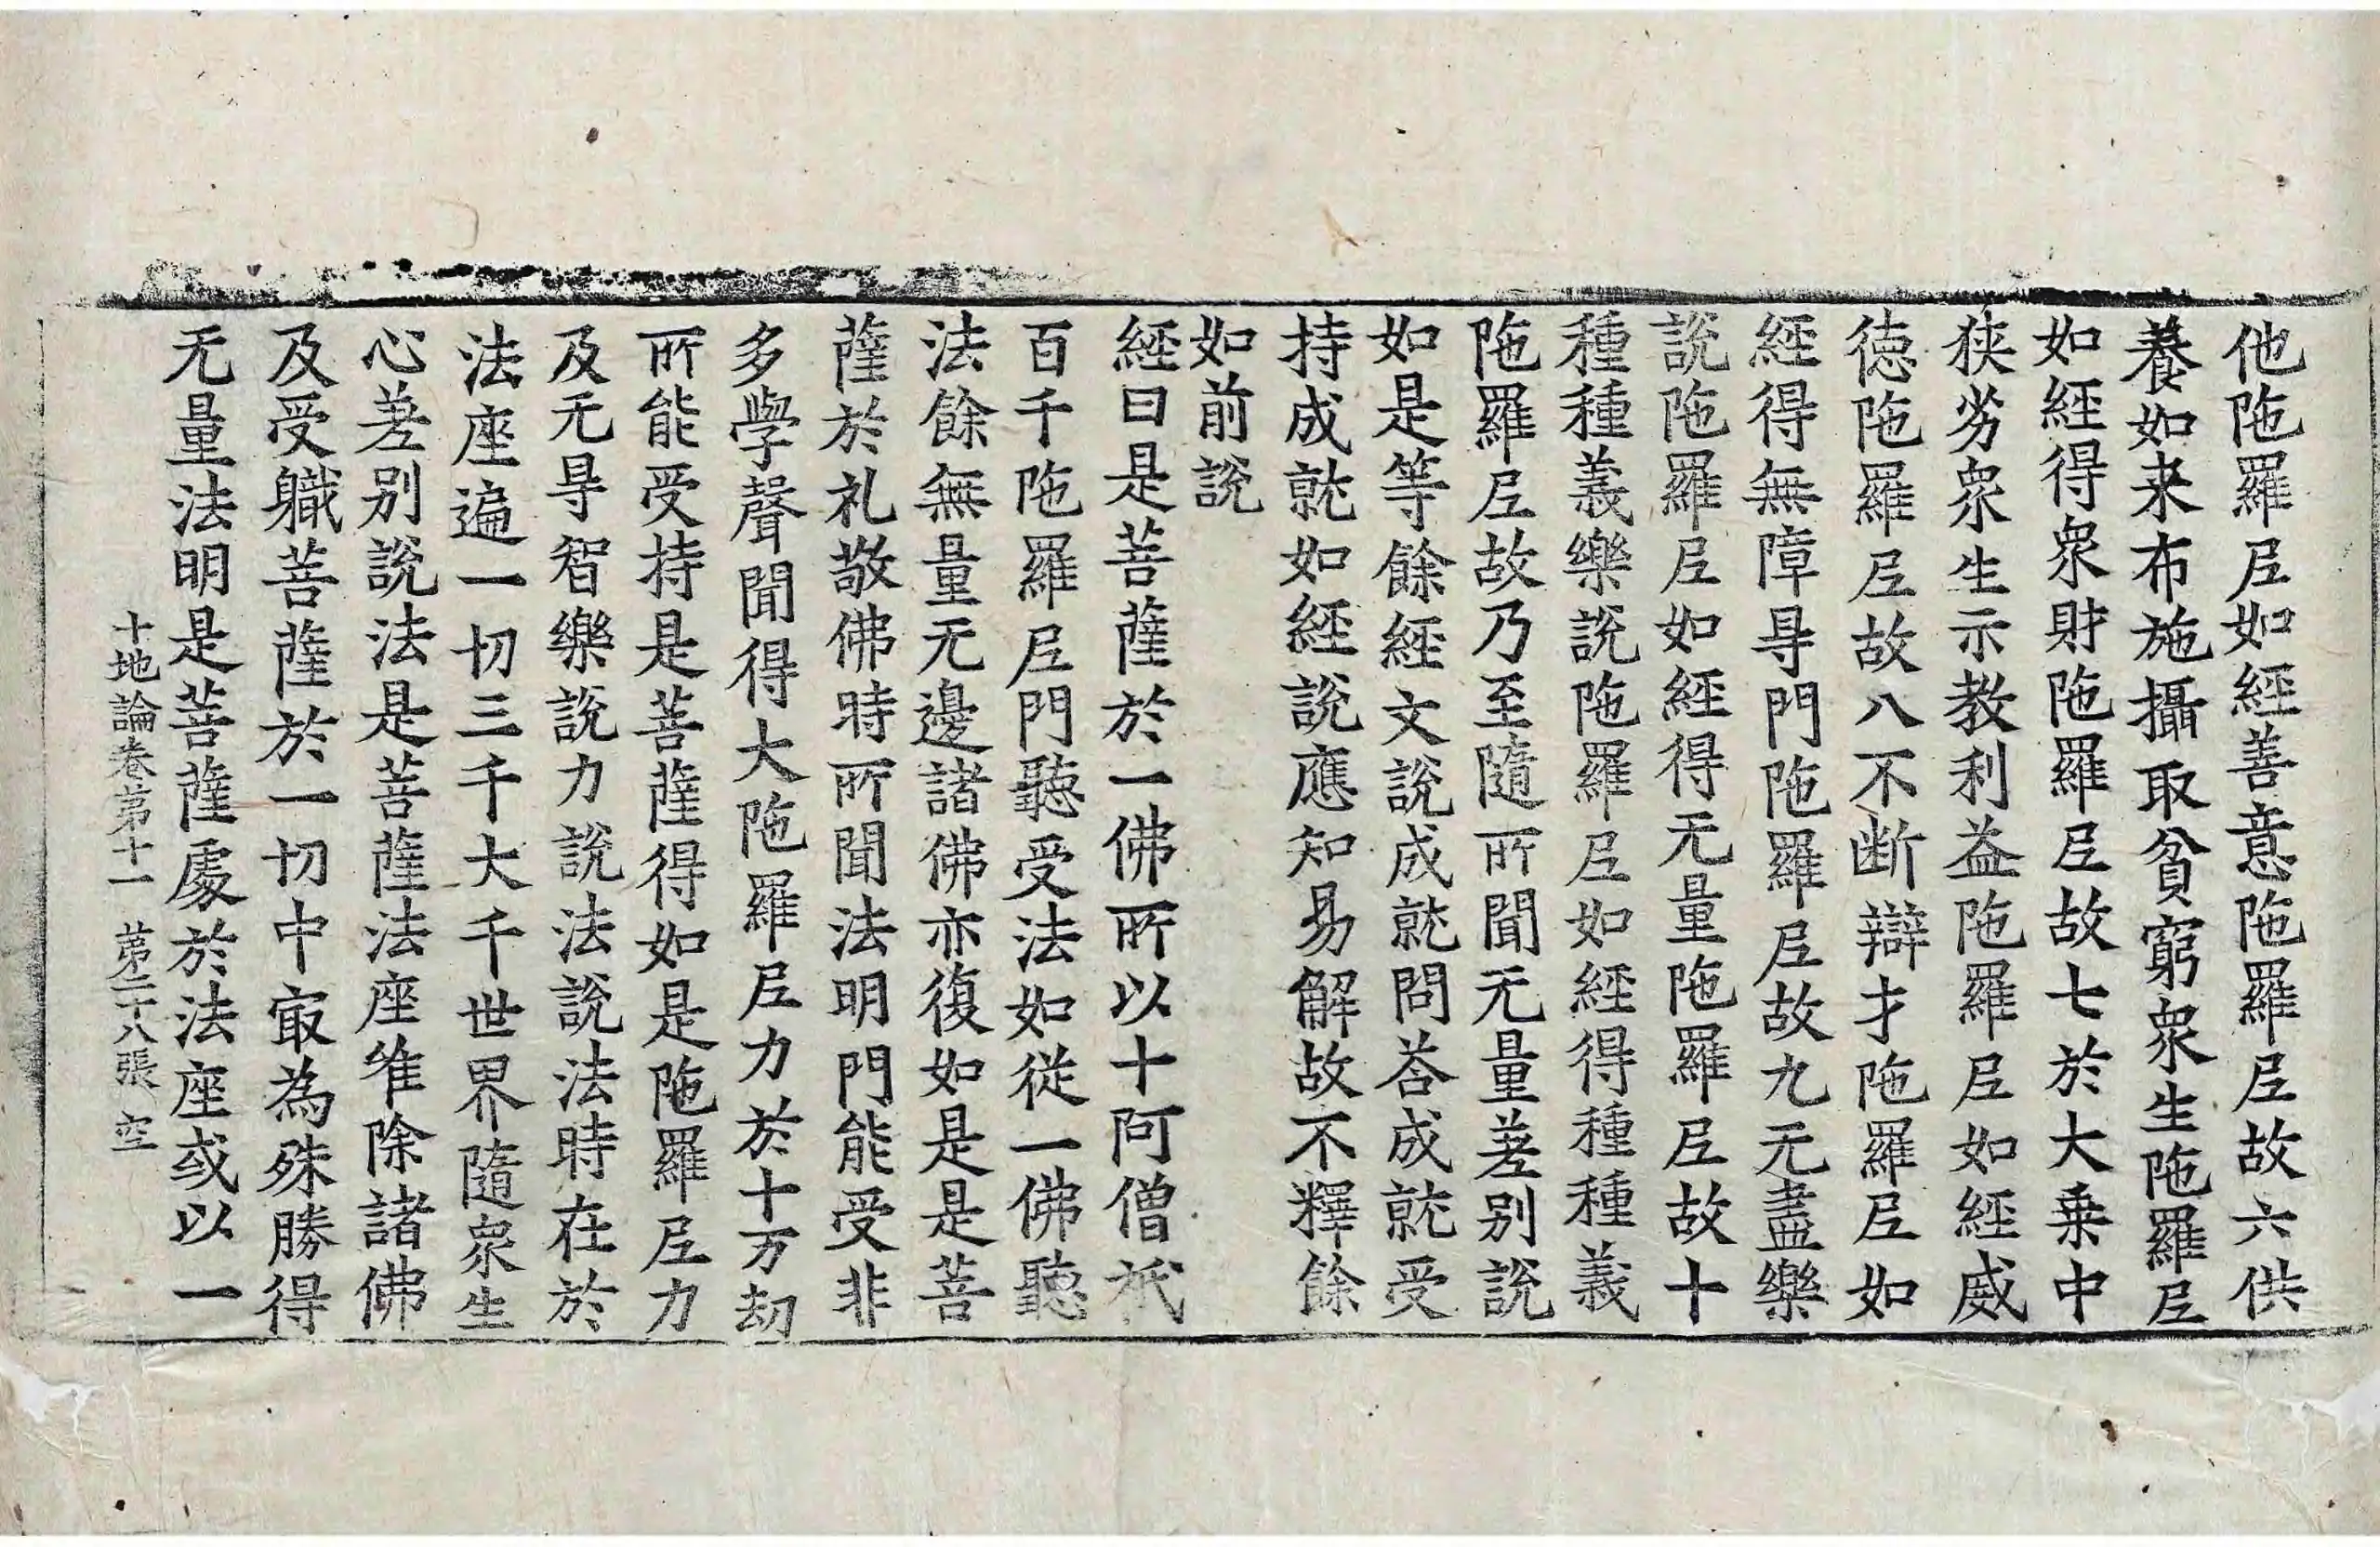 他陁羅尼如經善意陁羅尼故六供
養如来布施攝取貧窮衆生陁羅尼
如經得衆財陁羅尼故七於大乗中
狭劣衆生示教利益陁羅尼如經威
徳陁羅尼故八不断辯才陁羅尼如
經得無障㝵門陁羅尼故九无盡樂
說陁羅尼如經得无量陁羅尼故十
種種義樂說陁羅尼如經得種種義
陁羅尼故乃至隨所聞无量差别說
如是等餘經文說成就問荅成就受
持成就如經說應知易解故不釋餘
如前說
經曰是菩薩於一佛所以十阿僧祇
百千陁羅尼門聽受法如從一佛聽
法餘無量无邊諸佛亦復如是是菩
薩於礼敬佛時所聞法明門能受非
多學聲聞得大陁羅尼力於十万劫
所能受持是菩薩得如是陁羅尼力
及无㝵智樂說力說法說法時在於
法座遍一切三千大千世界隨衆生
心差别說法是菩薩法座唯除諸佛
及受職菩薩於一切中㝡為殊勝得
无量法明是菩薩處於法座或以一
十地論卷第十一 第二十八張 空